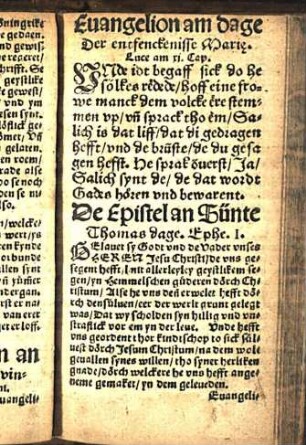 Euangelion am dage
Der entfenckenisse Marie.
Luce am xi. Cap.
VNde idt begaff sick do he
sölkes redede / hoff eine fro-
we manck dem volcke ere stem-
men vp / vñ sprack tho em / Sa-
lich is dat liff / dat di gedragen
hefft / vnd de brüste / de du gesa-
gen hefft. He sprak öuerst / Ja /
Salich synt de / de dat wordt
Gades hören vnd bewaren.
De Epistel an Sünte
Thomas dage. Ephe. I.
GElauet sy Godt vnd de Vader vnses
HEREN Jesu Christi / de vns ge-
segent hefft / mit allerleyley geystlikem se-
gen / yn Hemmelschen güderen dörch Chri-
stum / Alse he vns den erwelet hefft dör-
ch densüluen / eer der werlt grunt gelegt
was / Dat wy scholden syn hillig vnd vn-
straflick vor em yn der leue. Vnde hefft
vns geordent thor kindtschop to sick sül-
uest dörch Jesum Christum / na dem wol-
geuallen synes willen / tho syner herliken
gnade / dörch welckere he vns hefft ange-
neme gemaket / yn dem geleueden.
Euangeli-